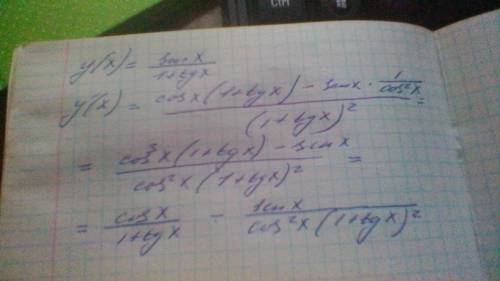 CTRL
y(x) = sin x / (1 + tg x)
y'(x) = (cos x (1 + tg x) - sin x · 1/cos²x) / (1 + tg x)² =
= (cos³x (1 + tg x) - sin x) / (cos²x (1 + tg x)²) =
= cos x / (1 + tg x) - sin x / (cos²x (1 + tg x)²)